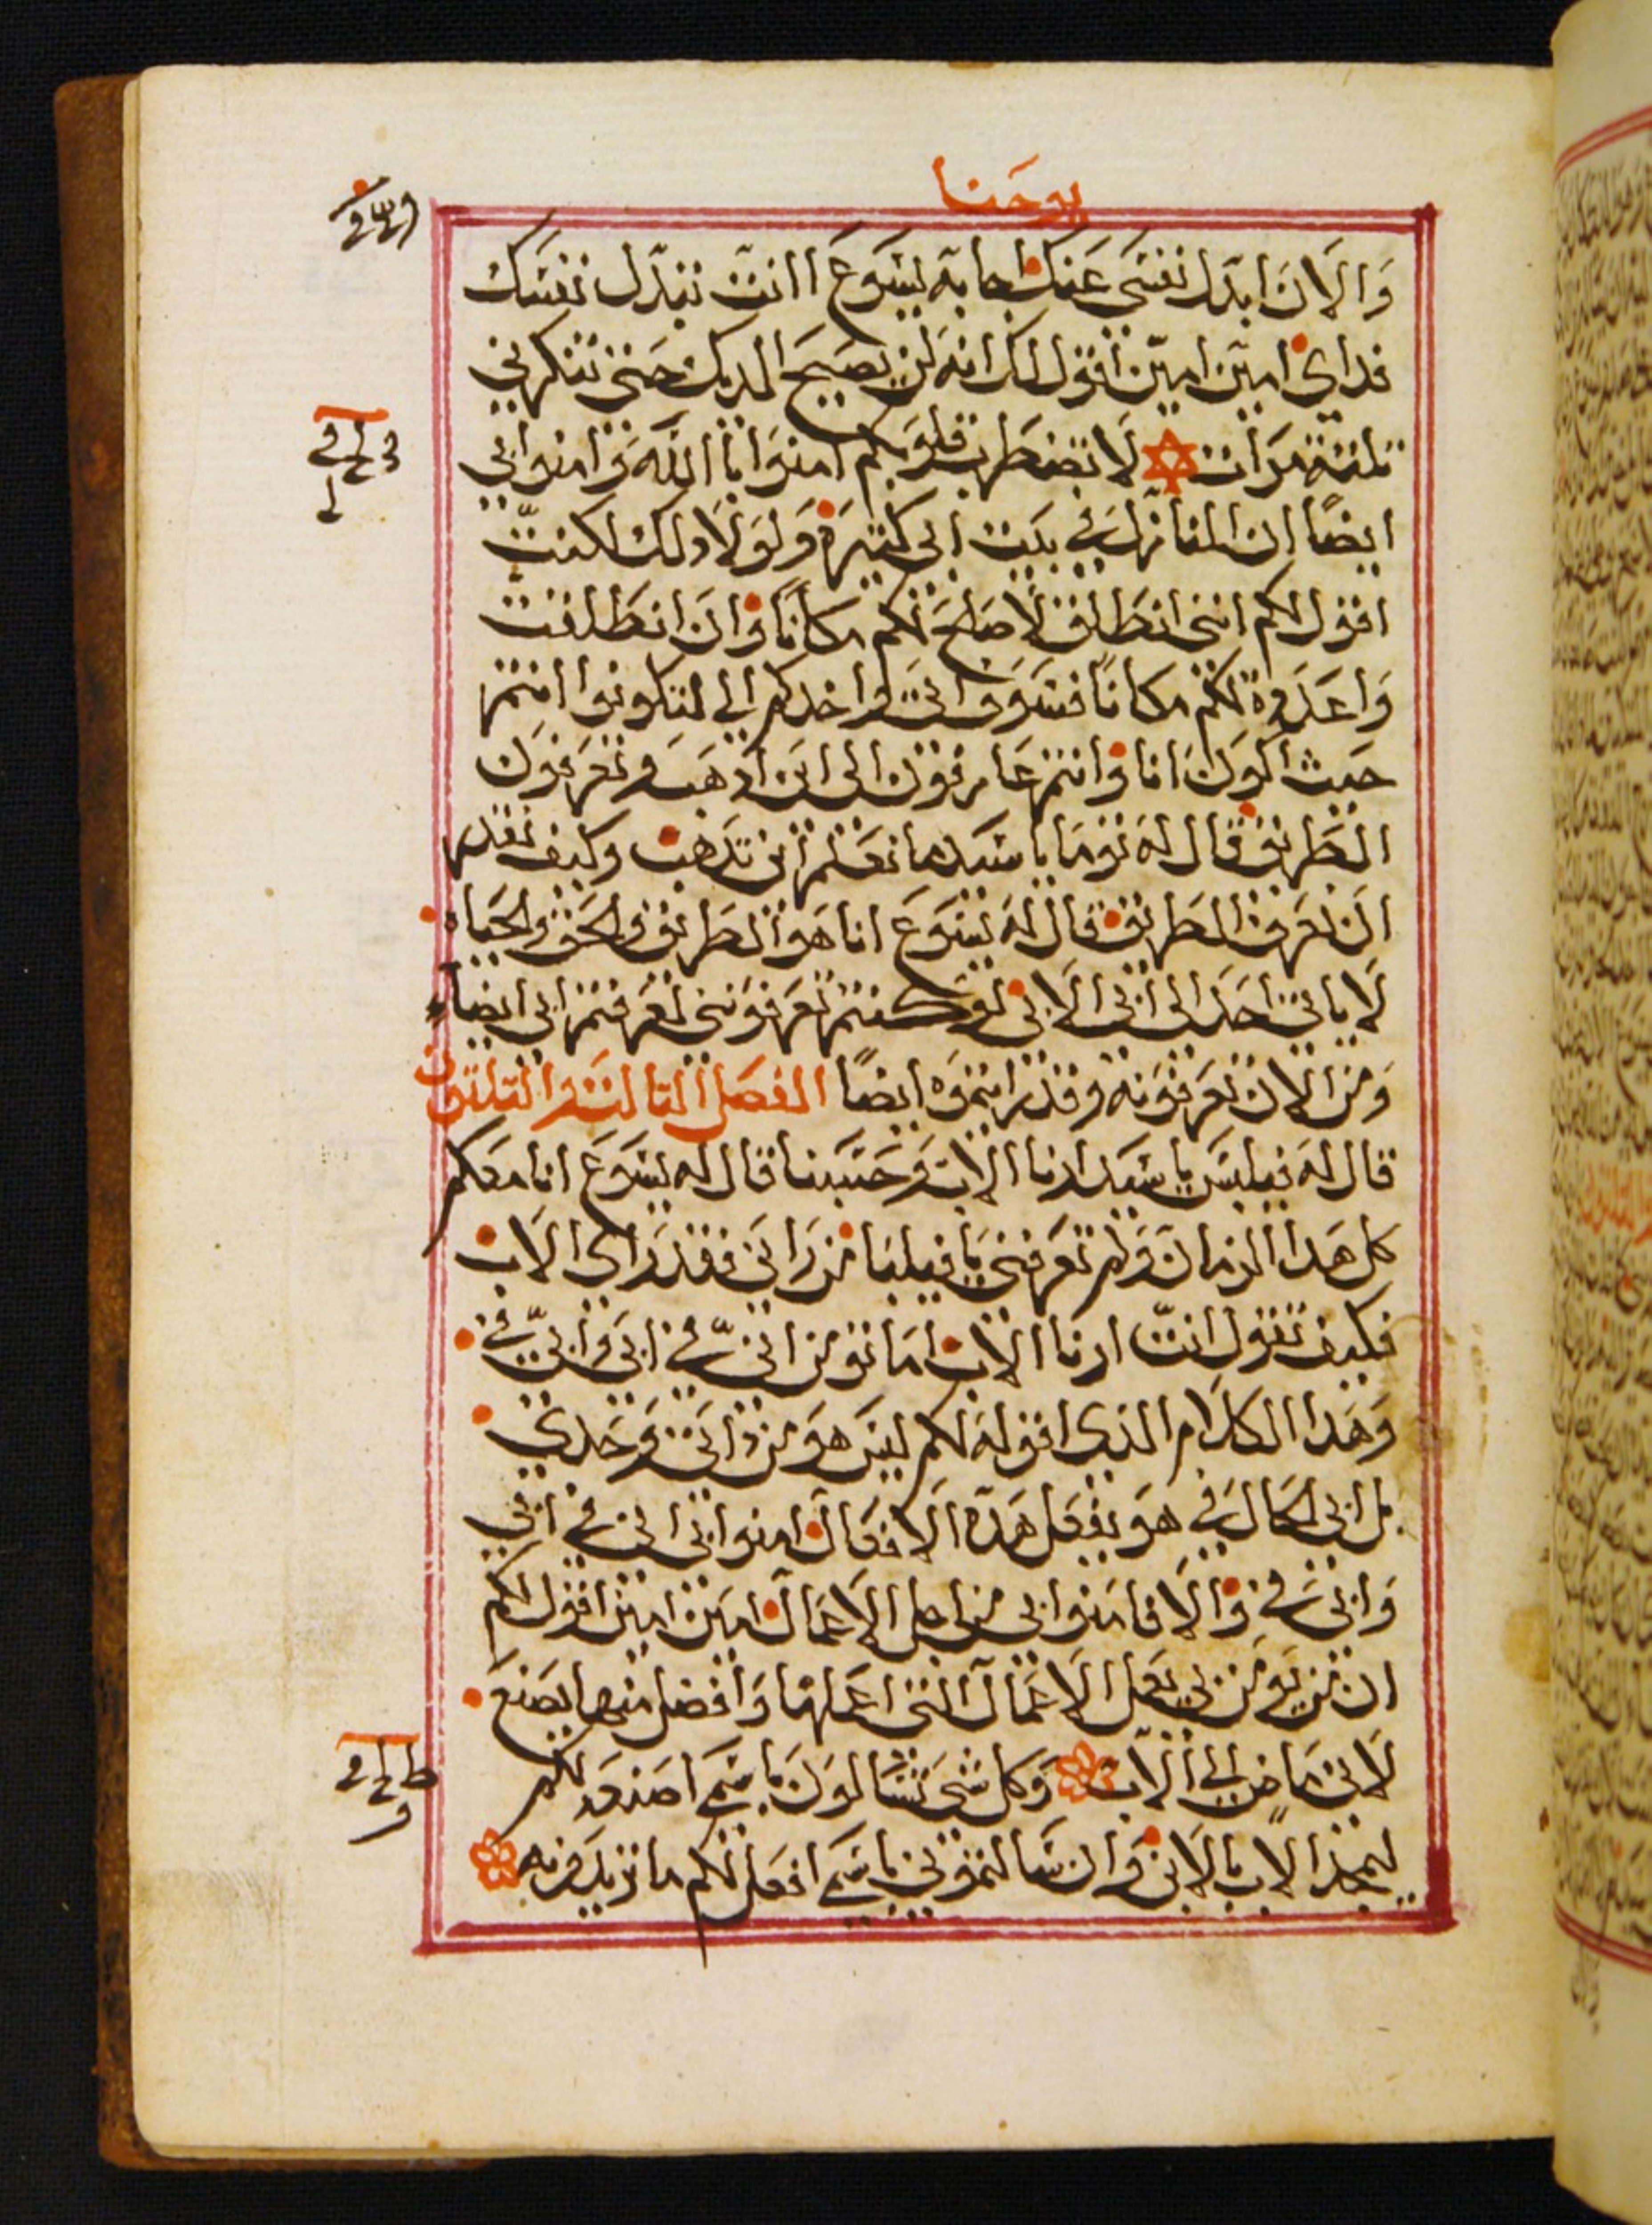 يوحنا
والان ابدل نفسى عنك اجابه يسوع اانت تبدل نفسك
فداي امين امين اقول لك انه لن يصيح الديك حتى تنكرني
تلتة مرات لا تضطرب قلوبكم امنوا باالله وامنوا بي
ايضًا ان المنازل في بيت ابي كتيرة ولولا دلك لكنت
اقول لكم اننى انطلق لاصلح لكم مكانًا وان انطلقت
واعددة لكم مكانًا فسوف اتى واخدكم الي لتكونوا انتم
حيث اكون انا وانتم عارفون الى اين ادهب وتعرفون
الطريق قال له توما يا سيد ما نعلم اين تدهب وكيف نقدر
ان نعرف الطريق قال له يسوع انا هو الطريق والحق والحياه
لا ياتى احد الى ابي الا بي لو كنتم تعرفوننى لعرفتم ابي ايضًا
ومن الان تعرفونه وقد رايتموه ايضًا الفصل التالت والتلتون
قال له فيلبس يا سيد ارنا الاب وحسبنا قال له يسوع انا معكم
كل هدا الزمان ولم تعرفنى يا فيلبا من رانى فقد راى الاب
فكيف تقول انت ارنا الاب اما تومن انى في ابي وابي في
وهدا الكلام الذى اقوله لكم ليس هو من داتى وحدي
بل ابي الحال في هو يفعل هده الافعال امنوا بي انى في ابي
وابي في والا فامنوا بي من اجل الاعمال امين امين اقول لكم
ان من يومن بي يعمل الاعمال التى اعملها وافضل منها يصنع
لانى ماض الي الاب وكل شى تسالون باسمي اصنعه لكم
ليمجد الاب بالابن وان سالتمونى باسمي افعل لكم ما تريدونه